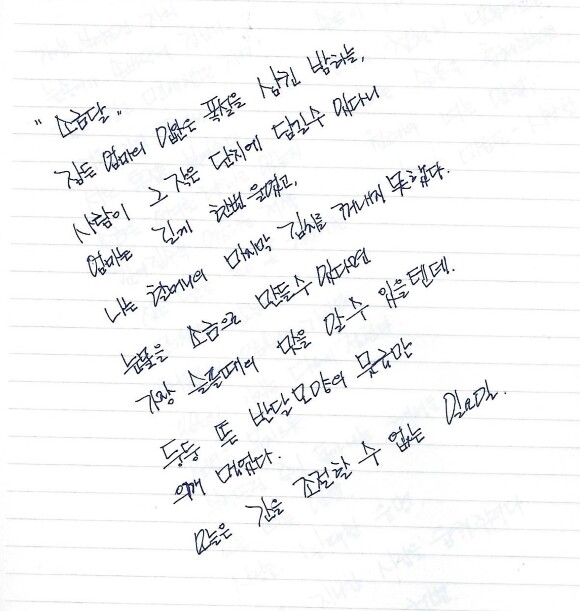 "소금달"
잠든 엄마의 입안은 폭설을 삼킨 밤하늘,
사람이 그 작은 단지에 담길수 있다니
엄마는 길게 한번 울었고,
나는 할머니의 마지막 김치를 꺼내지 못했다.
눈물을 소금으로 만들수 있다면
가장 슬플때의 맛을 알 수 있을텐데.
둥둥 뜬 반달모양의 뭇국만
으깨 먹었다.
오늘은 간을 조절할 수 없는 일요일.